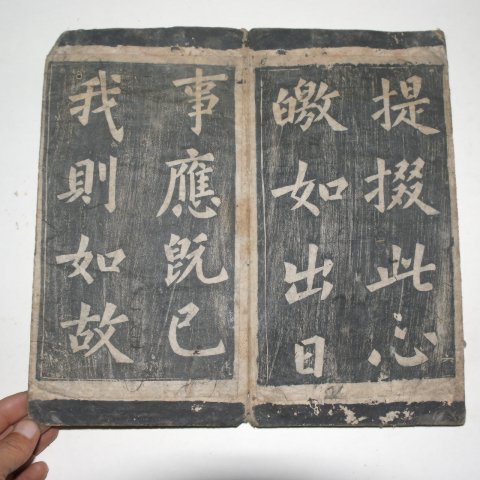 提掇此心
皦如出日
事應既已
我則如故